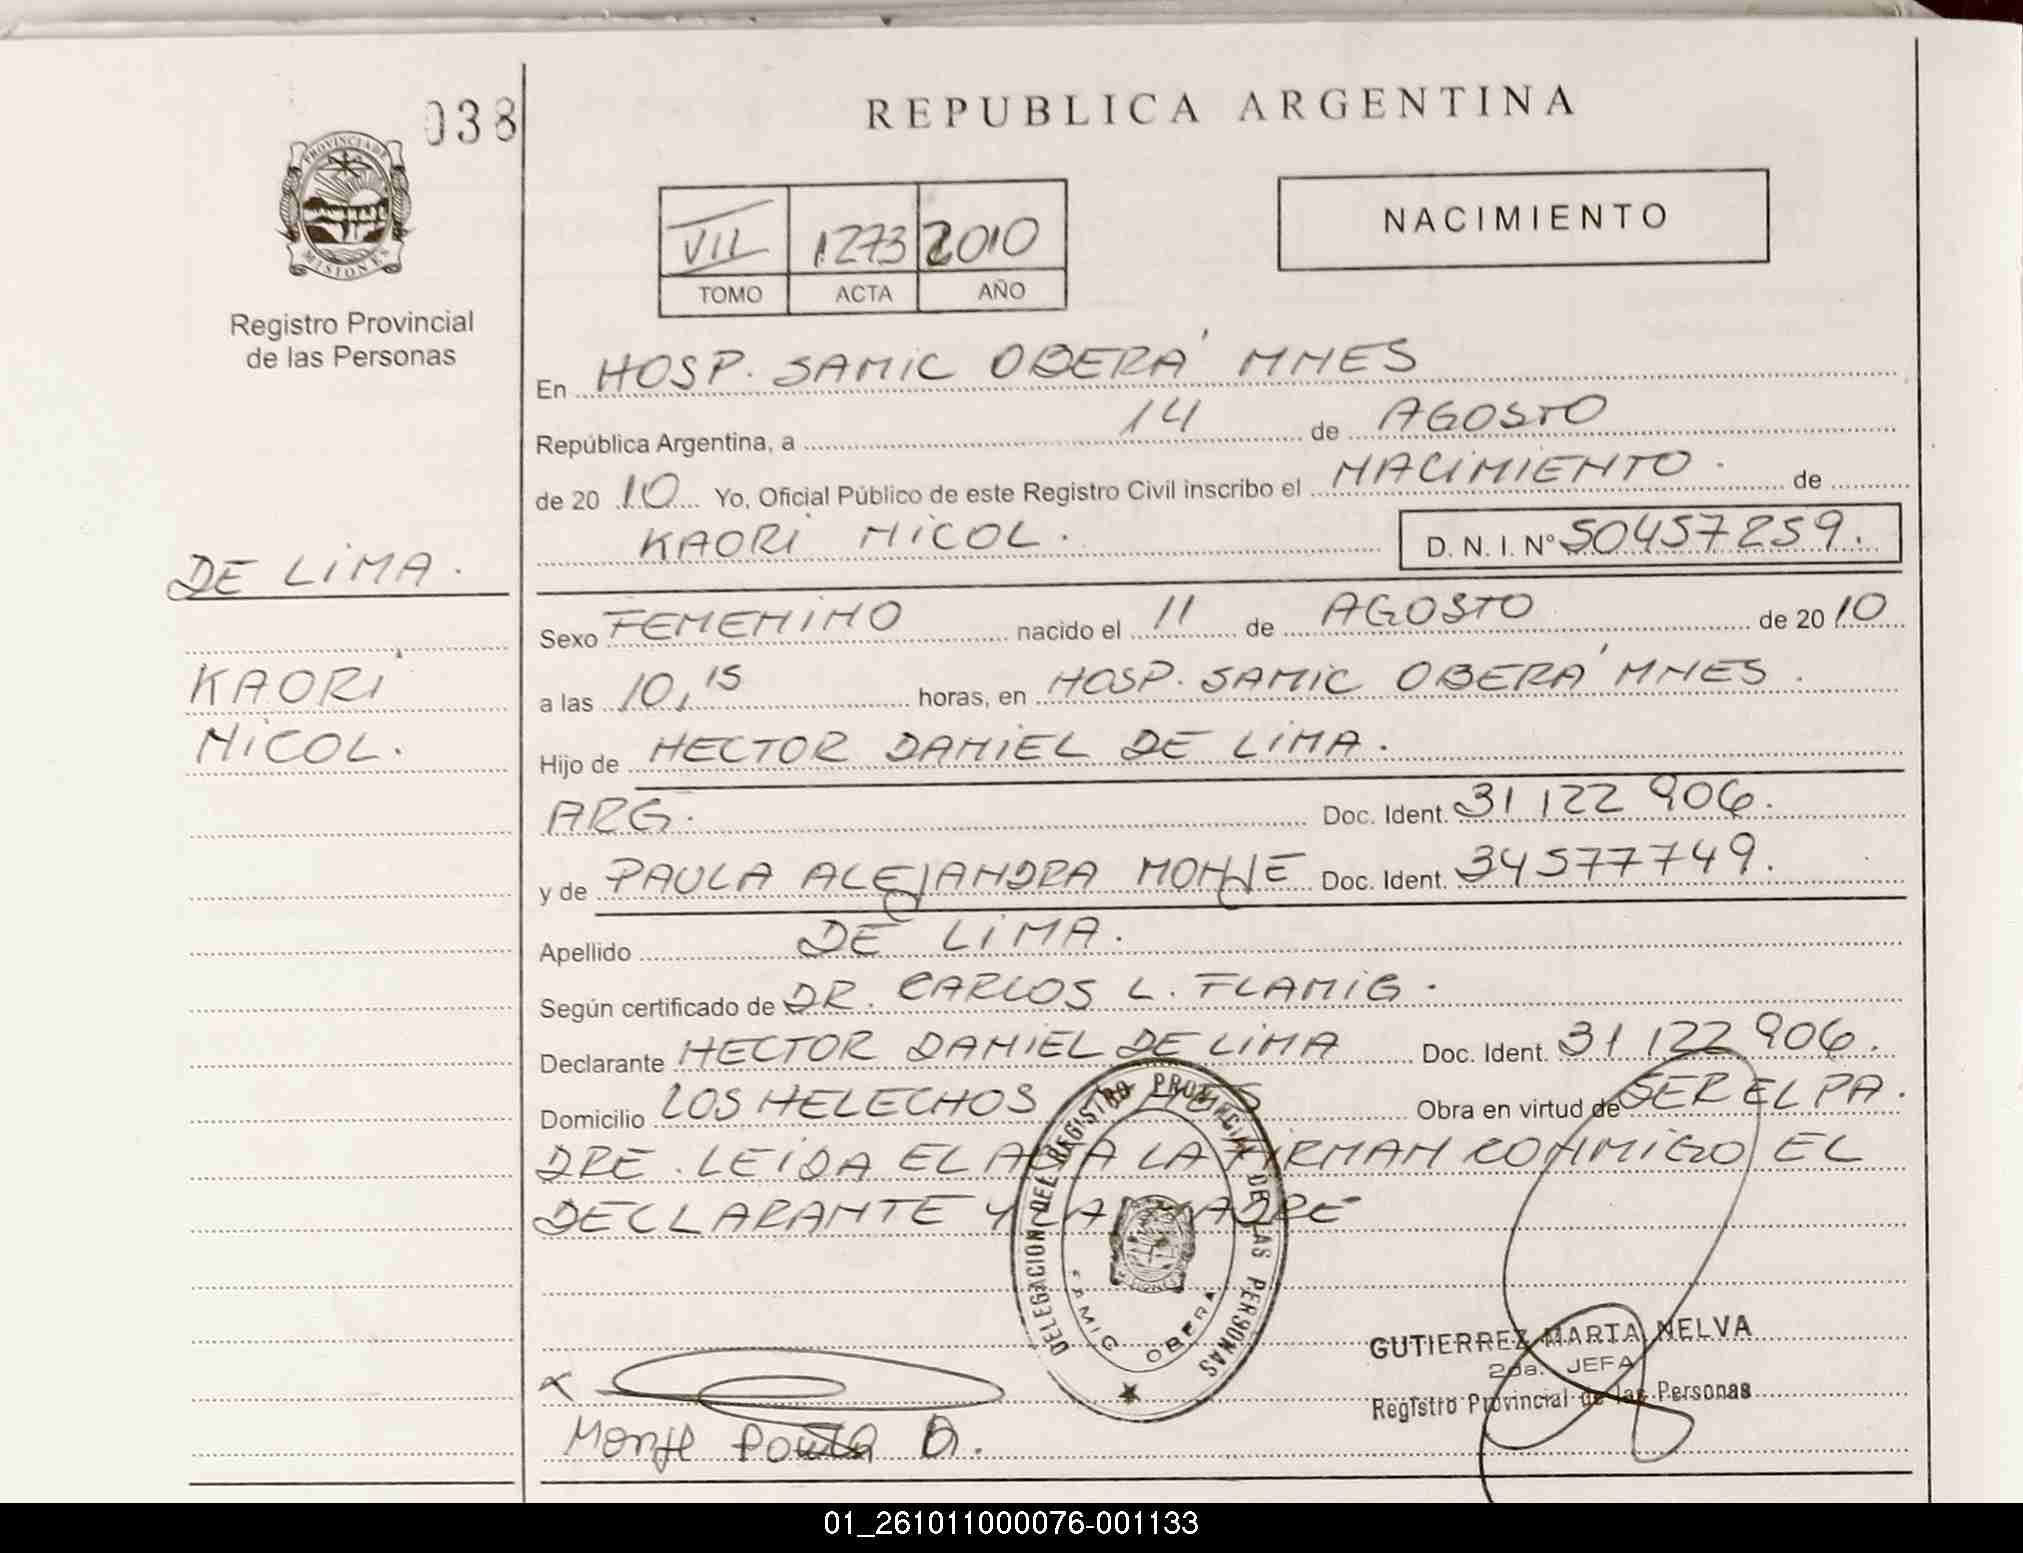 038
PROVINCIA DE
MISIONES
Registro Provincial
de las Personas
DE LIMA.
KAORI
NICOL.
REPUBLICA ARGENTINA
VII 1273 2010
TOMO ACTA AÑO
NACIMIENTO
En HOSP. SAMIC OBERÁ MNES
República Argentina, a 14 de AGOSTO
de 20 10 Yo, Oficial Público de este Registro Civil inscribo el NACIMIENTO. de
KAORI NICOL. D. N. I. N° 50457259.
Sexo FEMENINO nacido el 11 de AGOSTO de 20 10
a las 10,15 horas, en HOSP. SAMIC OBERÁ MNES.
Hijo de HECTOR DANIEL DE LIMA.
ARG. Doc. Ident. 31 122 906.
y de PAULA ALEJANDRA MONJE Doc. Ident. 34577749.
Apellido DE LIMA.
Según certificado de DR. CARLOS L. FLAMIG.
Declarante HECTOR DANIEL DE LIMA Doc. Ident. 31 122 906.
Domicilio LOS HELECHOS MNES Obra en virtud de SER EL PA.
DRE. LEIDA EL ACTA LA FIRMAN CONMIGO EL
DECLARANTE Y LA MADRE
DELEGACION DEL REGISTRO PROVINCIAL DE LAS PERSONAS
OBERA
GUTIERREZ MARTA NELVA
2da. JEFA
Registro Provincial de las Personas
Monje Paula A.
01_261011000076-001133